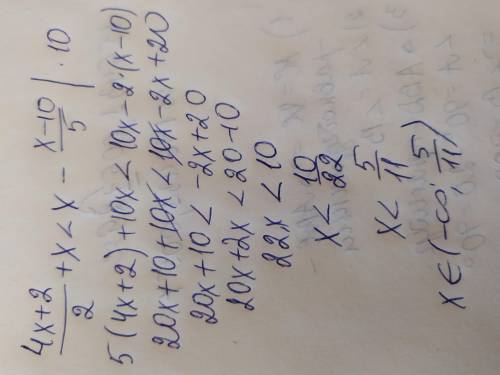 (4x+2)/2 + x < x − (x−10)/5 | · 10
5(4x+2)+10x < 10x−2·(x−10)
20x+10+10x < 10x−2x+20
20x+10 < −2x+20
20x+2x < 20−10
22x < 10
x < 10/22
x < 5/11
x ∈ (−∞; 5/11)